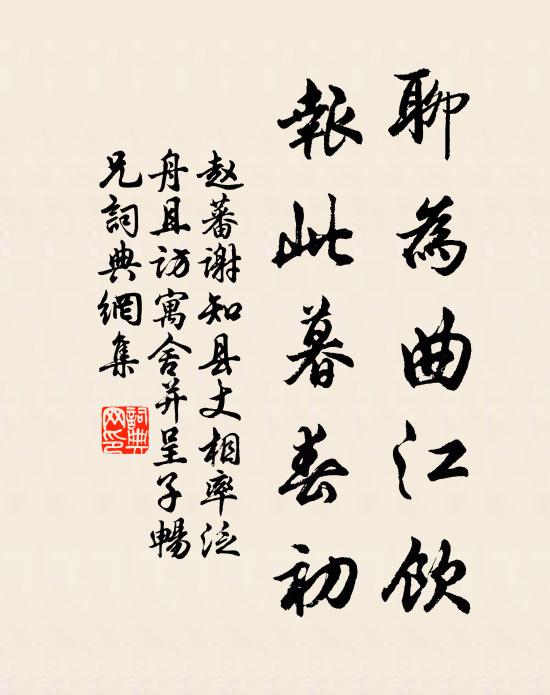 聊為曲江飲
報此暮春初
赵蕃谢知县丈相率泛
舟且访寓舍并呈子暢
兄詞典網集
詞典
网印